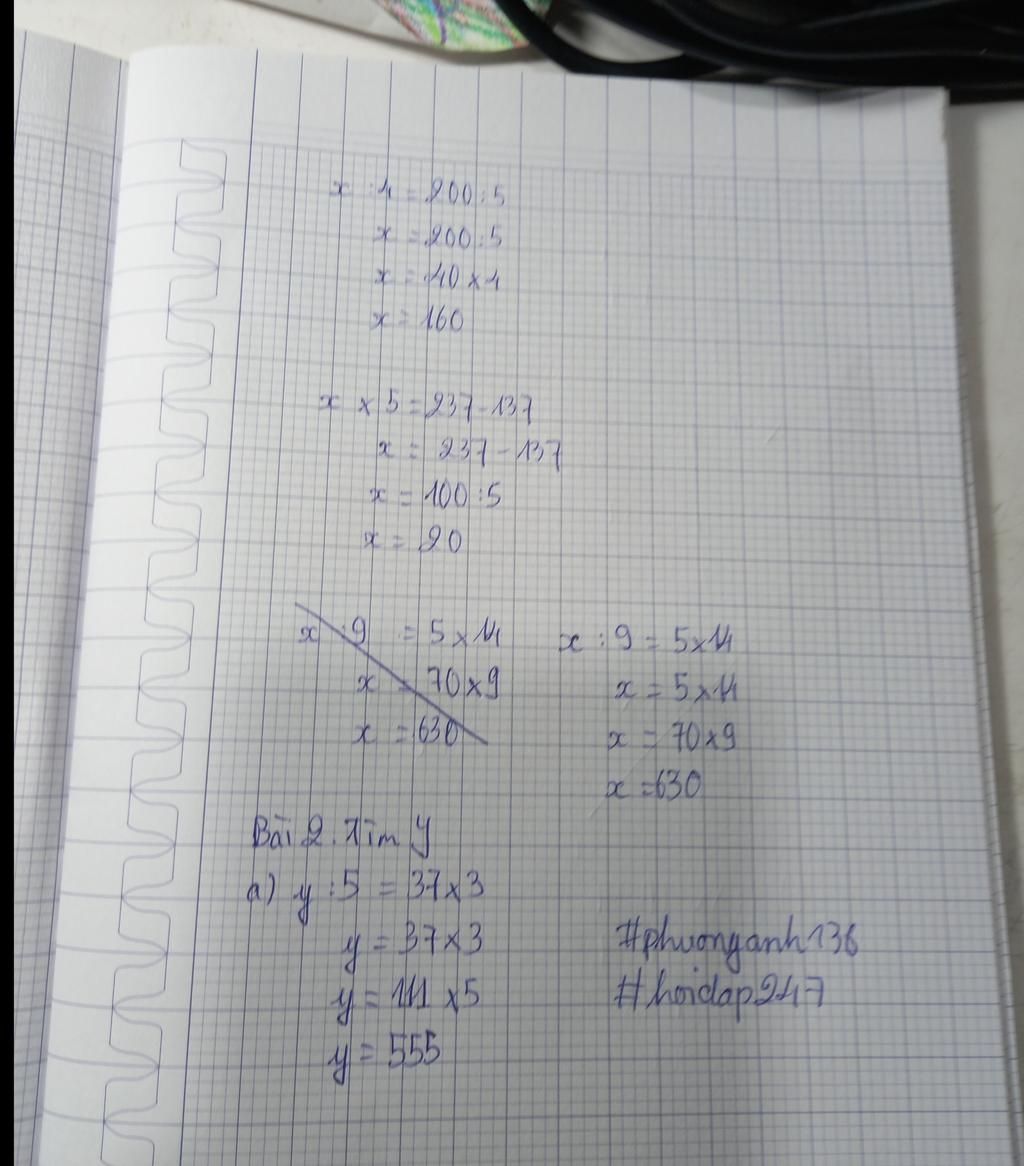 x : 4 = 200 : 5
x = 200 : 5
x = 40 x 4
x = 160
x x 5 = 237 - 137
x = 237 - 137
x = 100 : 5
x = 20
x : 9 = 5 x 14
x = 70 x 9
x = 630
x : 9 = 5 x 14
x = 5 x 14
x = 70 x 9
x = 630
Bài 2. Tìm y
a) y : 5 = 37 x 3
y = 37 x 3
y = 111 x 5
y = 555
#phuonganh136
#hoidap247